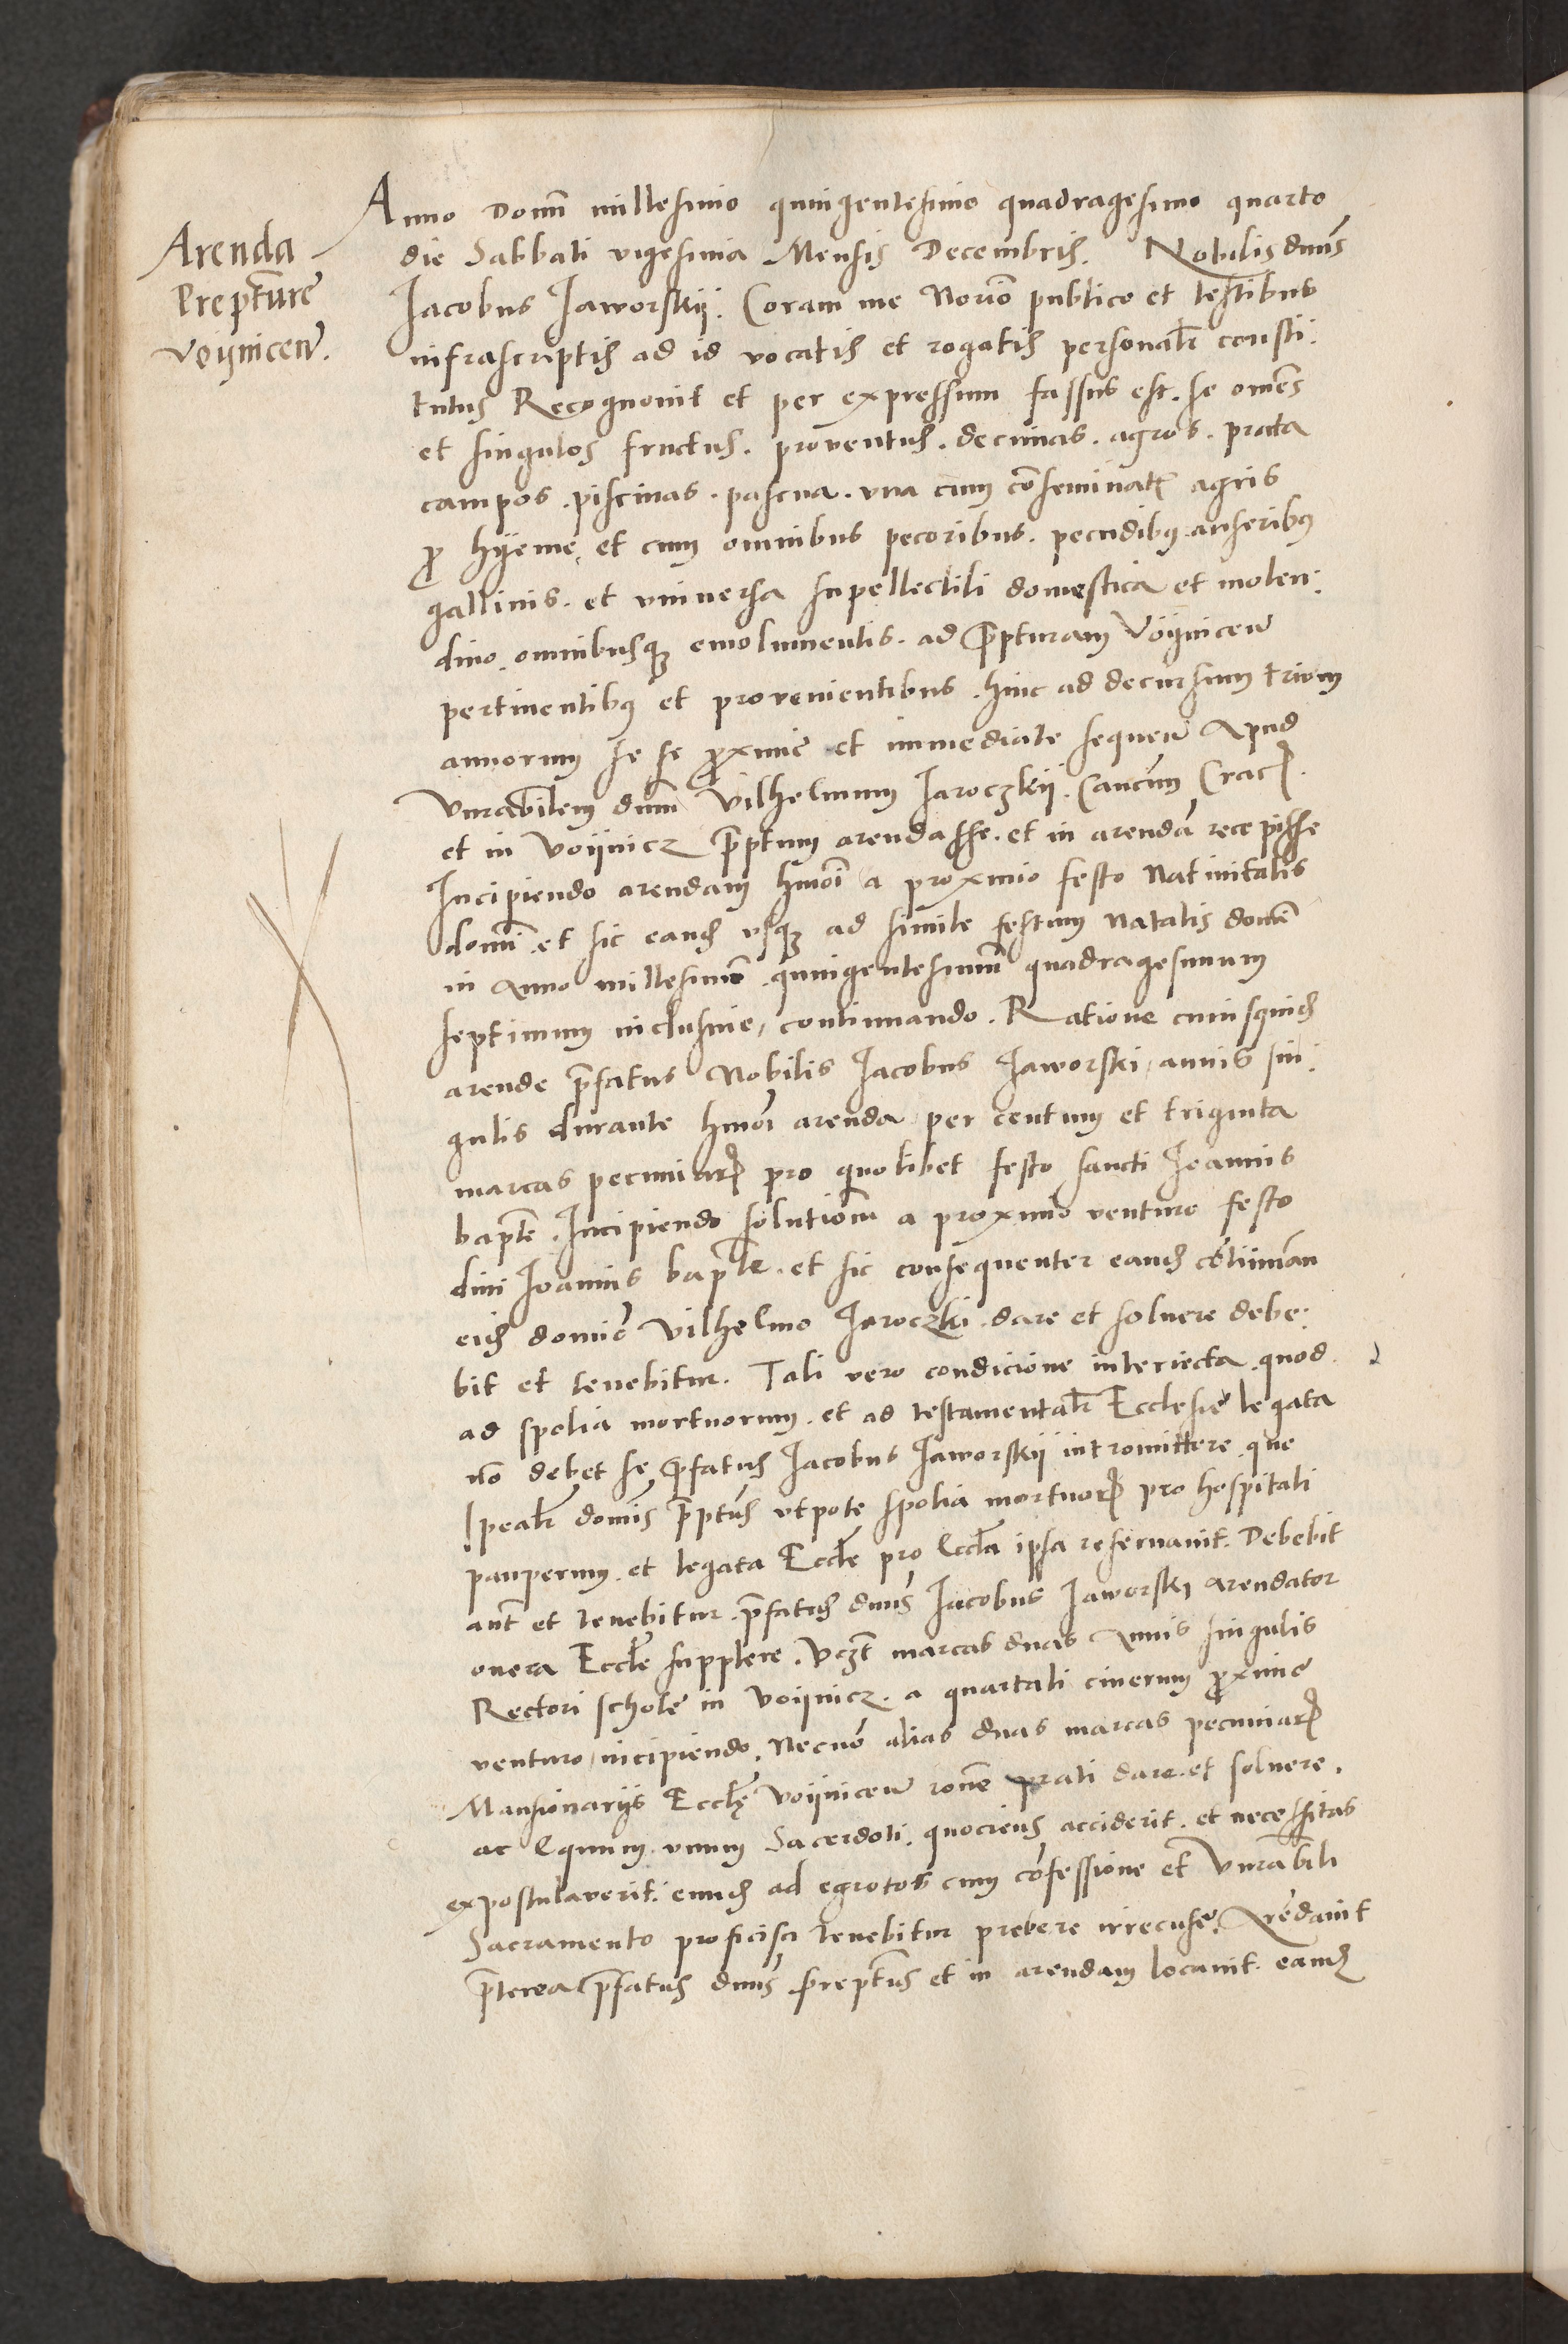 Arenda
Prept͠ure
Voijnicen̄.
Anno Domi millesimo quingentesimo quadragesimo quarto
die Sabbati vigesima Mensis Decembris. Nobilis dn̄us
Jacobus Jaworskij. Coram me Nori̅o publico et testibus
infrascriptis ad id vocatis et rogatis personalr̄ consti:
tutus Recognovit et per expressum fassus est. se omēs
et singulos fructus. proventus. decimas. agros. prata
campos. piscinas. pascua. vna cum cōseminatꝭ agris
ꝓ hÿeme, et cum omnibus pecoribus. pecudibꝰ. anseribꝰ
gallinis. et vniuersa supellectili domestica et molen:
dino. omnibusqꝫ emolumentis. ad p̄pturam Voÿnicen̄
pertinentibꝰ et provenientibus. hinc ad decursum trium
annorum se se ꝓxime et immediate sequen̄ Apud
Vnrabilem dnm̄ Vilhelmum Jaroczkij. Cancūm Cracꝭ.
et in Voijnicz p̄ptum arendasse. et in arendā recepisse
Incipiendo arendam hmōi a proximo festo Natiuitatis
domī. et sic eandꝫ vsqꝫ ad simile festum Natalis domī
in Anno millesimō quingentesimū quadragesimum
septimum inclusiue, continuando. Ratione cuiusquidꝫ
arende p̄fatus Nobilis Jacobus Jaworski, annis sin:
gulis durante hmōi arenda per centum et triginta
marcas pecuniarꝭ pro quolibet festo sancti Joannis
bapt̄e. Incipiendo solutionē a proximo venturo festo
diui Joannis bapt̄e. et sic consequenter eandꝫ cōtinuan
eidꝫ domiō Vilhelmo Jaroczki. dare et soluere debe:
bit et tenebitur. Tali vero condicione interiecta quod
ad spolia mortuorum. et ad testamentalr̄ Ecclesie legata
nō debet se p̄fatus Jacobus Jaworskij intromittere que
spealr̄ domīs p̄ptus vtpote spolia mortuorꝭ pro hospitali
pauperum. et legata Eccłe pro Eccłia ipsa reseruauit. Debebit
aūt et tenebitur. p̄fatus dnūs Jacobus Jaworski arendator
onera Eccłe supplere. Vczt marcas duas Annis singulis
Rectori scholę in Voijnicz. a quartali cinerum ꝓxime
venturo, incipiendo. Necnō alias duas marcas pecuniarꝭ
Mansionarijs Eccłę Voijnicen̄ rōne prati dare. et soluere.
ac Equum vnum Sacerdoti. quociens acciderit. et necessitas
expostulaverit. eundꝫ ad egrotos cum cōfessione et Vnrābili
Sacramento proficisci tenebitur prebere irrecuse. Arēdauit
p̄terea p̄fatus dnūs preptūs et in arendam locauit. eandꝫ